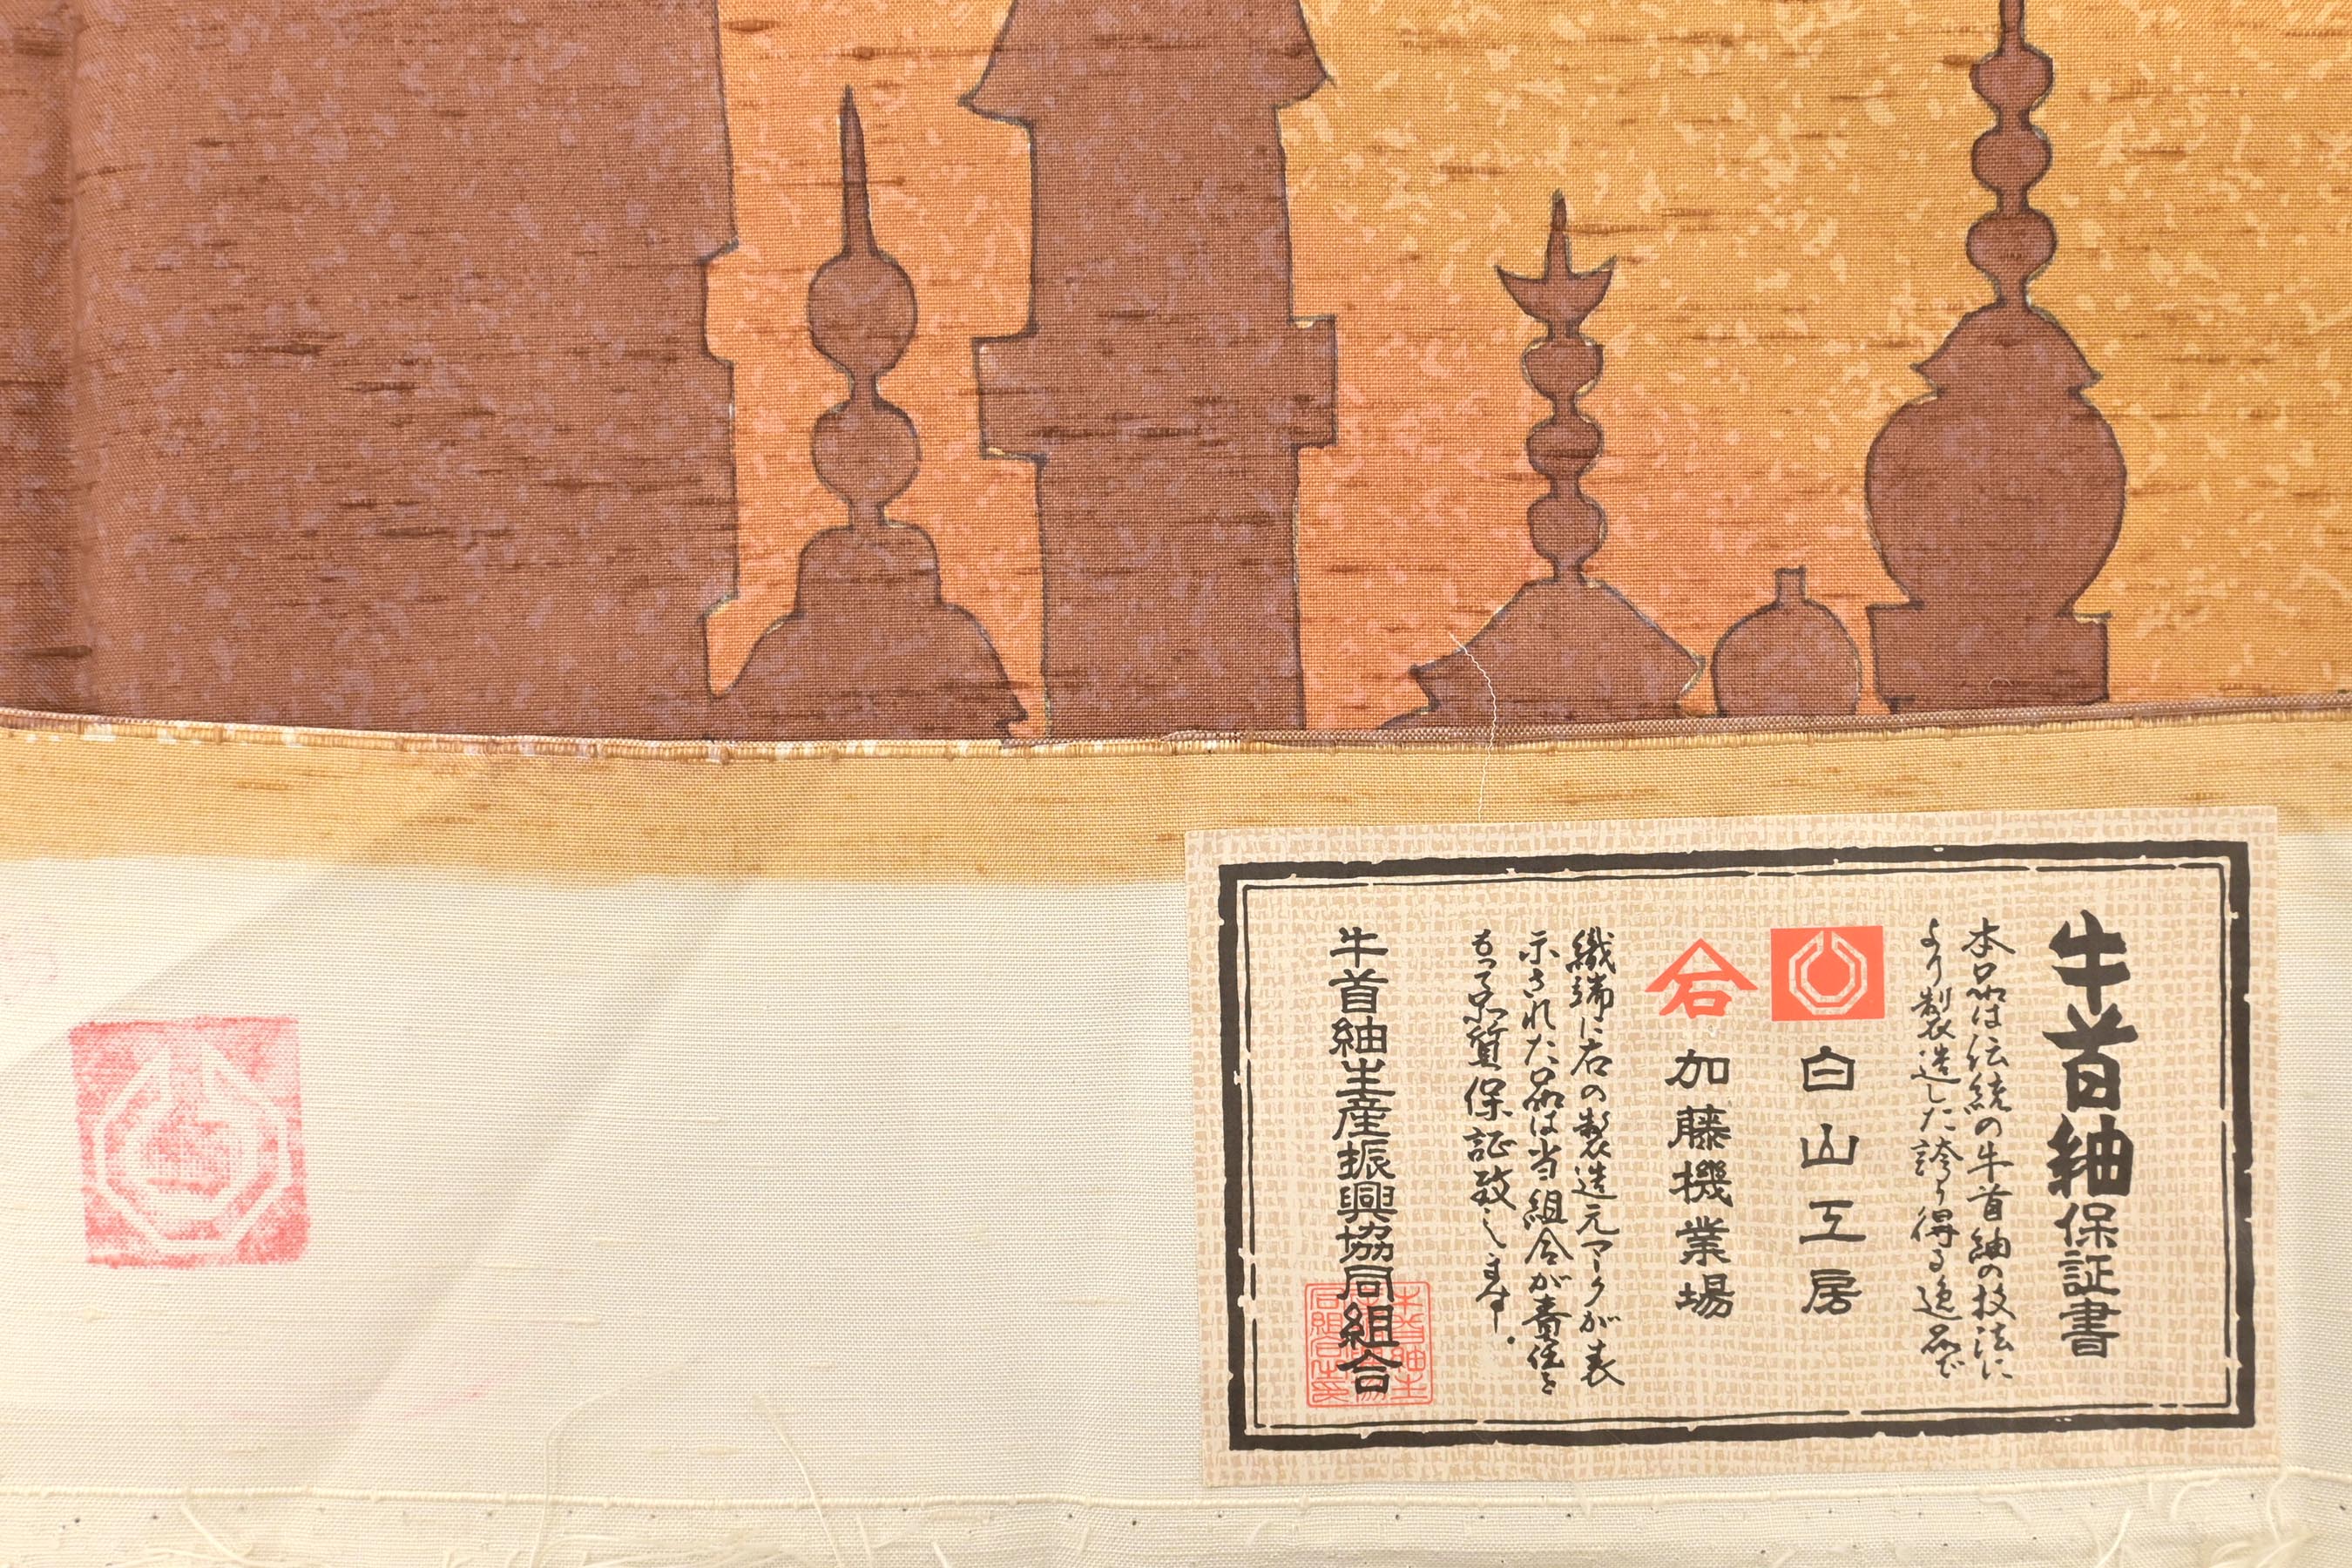 牛首紬保証書
本品は伝統の牛首紬の技法に
より製造した誇り得る逸品で
白山工房
石
加藤機業場
織端に右の製造元マークが表
示された品は当組合が責任を
もって品質保証致します.
牛首紬生産振興協同組合